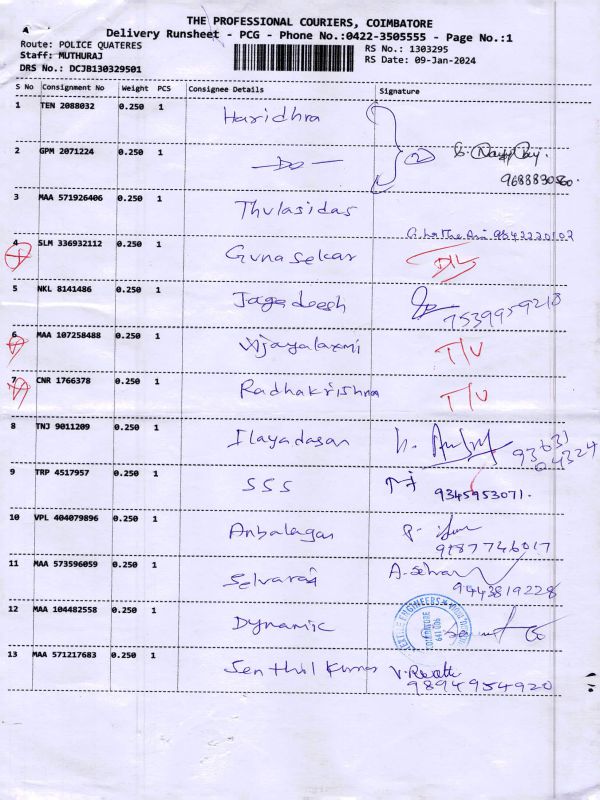 THE PROFESSIONAL COURIERS, COIMBATORE
Delivery Runsheet - PCG - Phone No.:0422-3505555 - Page No.:1
Route: POLICE QUATERES
Staff: MUTHURAJ
DRS No.: DCJB130329501
RS No.: 1303295
RS Date: 09-Jan-2024
S No Consignment No Weight PCS Consignee Details Signature
1 TEN 2088032 0.250 1 Haridhra
2 GPM 2071224 0.250 1 -Do- 2
3 MAA 571926406 0.250 1 Thulasidas 9543220102
4 SLM 336932112 0.250 1 Gunasekar
5 NKL 8141486 0.250 1 Jagadeesh 7539959218
6 MAA 107258488 0.250 1 Vijayalaxmi T/V
7 CNR 1766378 0.250 1 Radhakrishna T/V
8 TNJ 9011209 0.250 1 Ilayadasan 93631 04324
9 TRP 4517957 0.250 1 SSS 9345953071.
10 VPL 404079896 0.250 1 Anbalagan 9787746017
11 MAA 573596059 0.250 1 Selvaraj A. Selvar 9443819228
12 MAA 104482558 0.250 1 Dynamic COIMBATORE 641 006
13 MAA 571217683 0.250 1 Senthil Kumar V. Revathi 9894954920